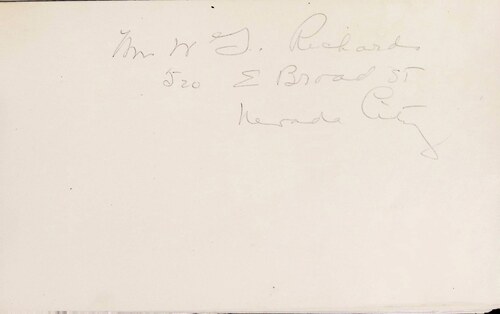 Mr W G. Richards
520 E Broad ST
Nevada City